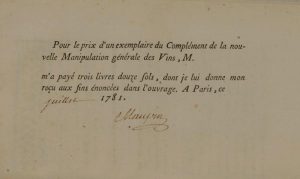 Pour le prix d'un exemplaire du Complément de la nou-
velle Manipulation générale des Vins, M.
m'a payé trois livres douze sols, dont je lui donne mon
reçu aux fins énoncées dans l'ouvrage. A Paris, ce
juillet 1781.
Maupin